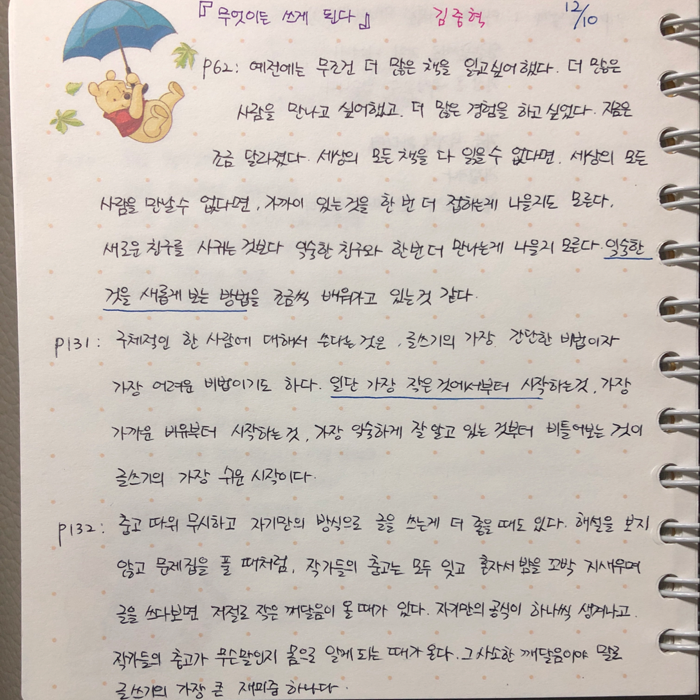 『무엇이든 쓰게 된다』 김중혁 12/10
p62: 예전에는 무조건 더 많은 책을 읽고싶어했다. 더 많은
사람을 만나고 싶어했고, 더 많은 경험을 하고 싶었다. 지금은
조금 달라졌다. 세상의 모든 책을 다 읽을 수 없다면, 세상의 모든
사람을 만날 수 없다면, 가까이 있는 것을 한 번 더 접하는게 나을지도 모른다.
새로운 친구를 사귀는 것보다 익숙한 친구와 한번 더 만나는게 나을지 모른다. 익숙한
것을 새롭게 보는 방법을 조금씩 배워가고 있는 것 같다.
p131: 구체적인 한 사람에 대해서 쓴다는 것은, 글쓰기의 가장 간단한 비법이자
가장 어려운 비법이기도 하다. 일단 가장 작은 것에서부터 시작하는 것, 가장
가까운 비유부터 시작하는 것, 가장 익숙하게 잘 알고 있는 것부터 비틀어보는 것이
글쓰기의 가장 쉬운 시작이다.
p132: 충고 따위 무시하고 자기만의 방식으로 글을 쓰는게 더 좋을 때도 있다. 해설을 보지
않고 문제집을 풀 때처럼, 작가들의 충고는 모두 잊고 혼자서 밤을 꼬박 지새우며
글을 쓰다보면 저절로 작은 깨달음이 올 때가 있다. 자기만의 공식이 하나씩 생겨나고,
작가들의 충고가 무슨말인지 몸으로 알게 되는 때가 온다. 그 사소한 깨달음이야 말로
글쓰기의 가장 큰 재미중 하나다.